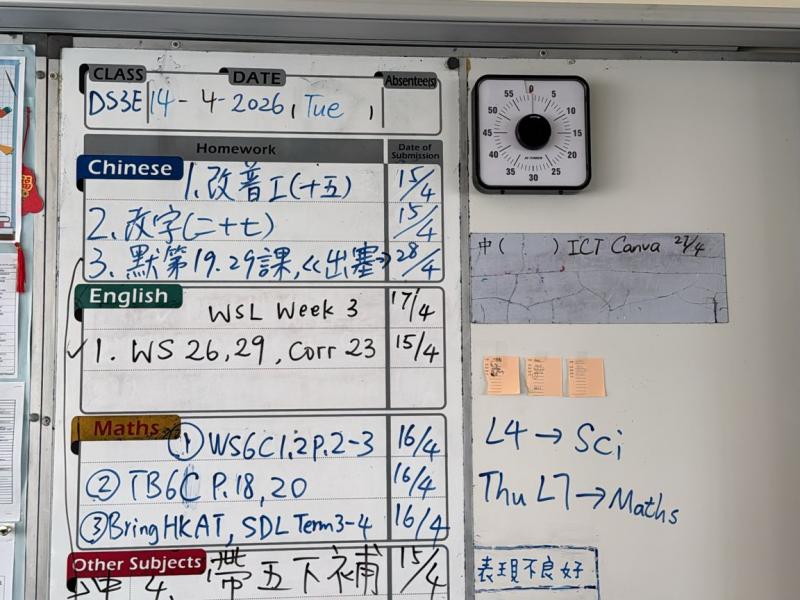 CLASS DATE Absentee(s)
DS3E 14-4-2026, Tue,
Homework Date of Submission
Chinese
1. 改普I(十五) 15/4
2. 改字(二十七) 15/4
3. 默第19.29課,《出塞》 28/4
English
WSL Week 3 17/4
✓1. WS 26,29, Corr 23 15/4
Maths
① WS6C1.2P.2-3 16/4
② TB6C P.18,20 16/4
③ Bring HKAT, SDL Term3-4 16/4
Other Subjects
4. 帶五下補 15/4
55 0 5
50 10
45 15
40 20
35 30 25
中( ) ICT Canva 27/4
L4 → Sci
Thu L7 → Maths
表現不良好